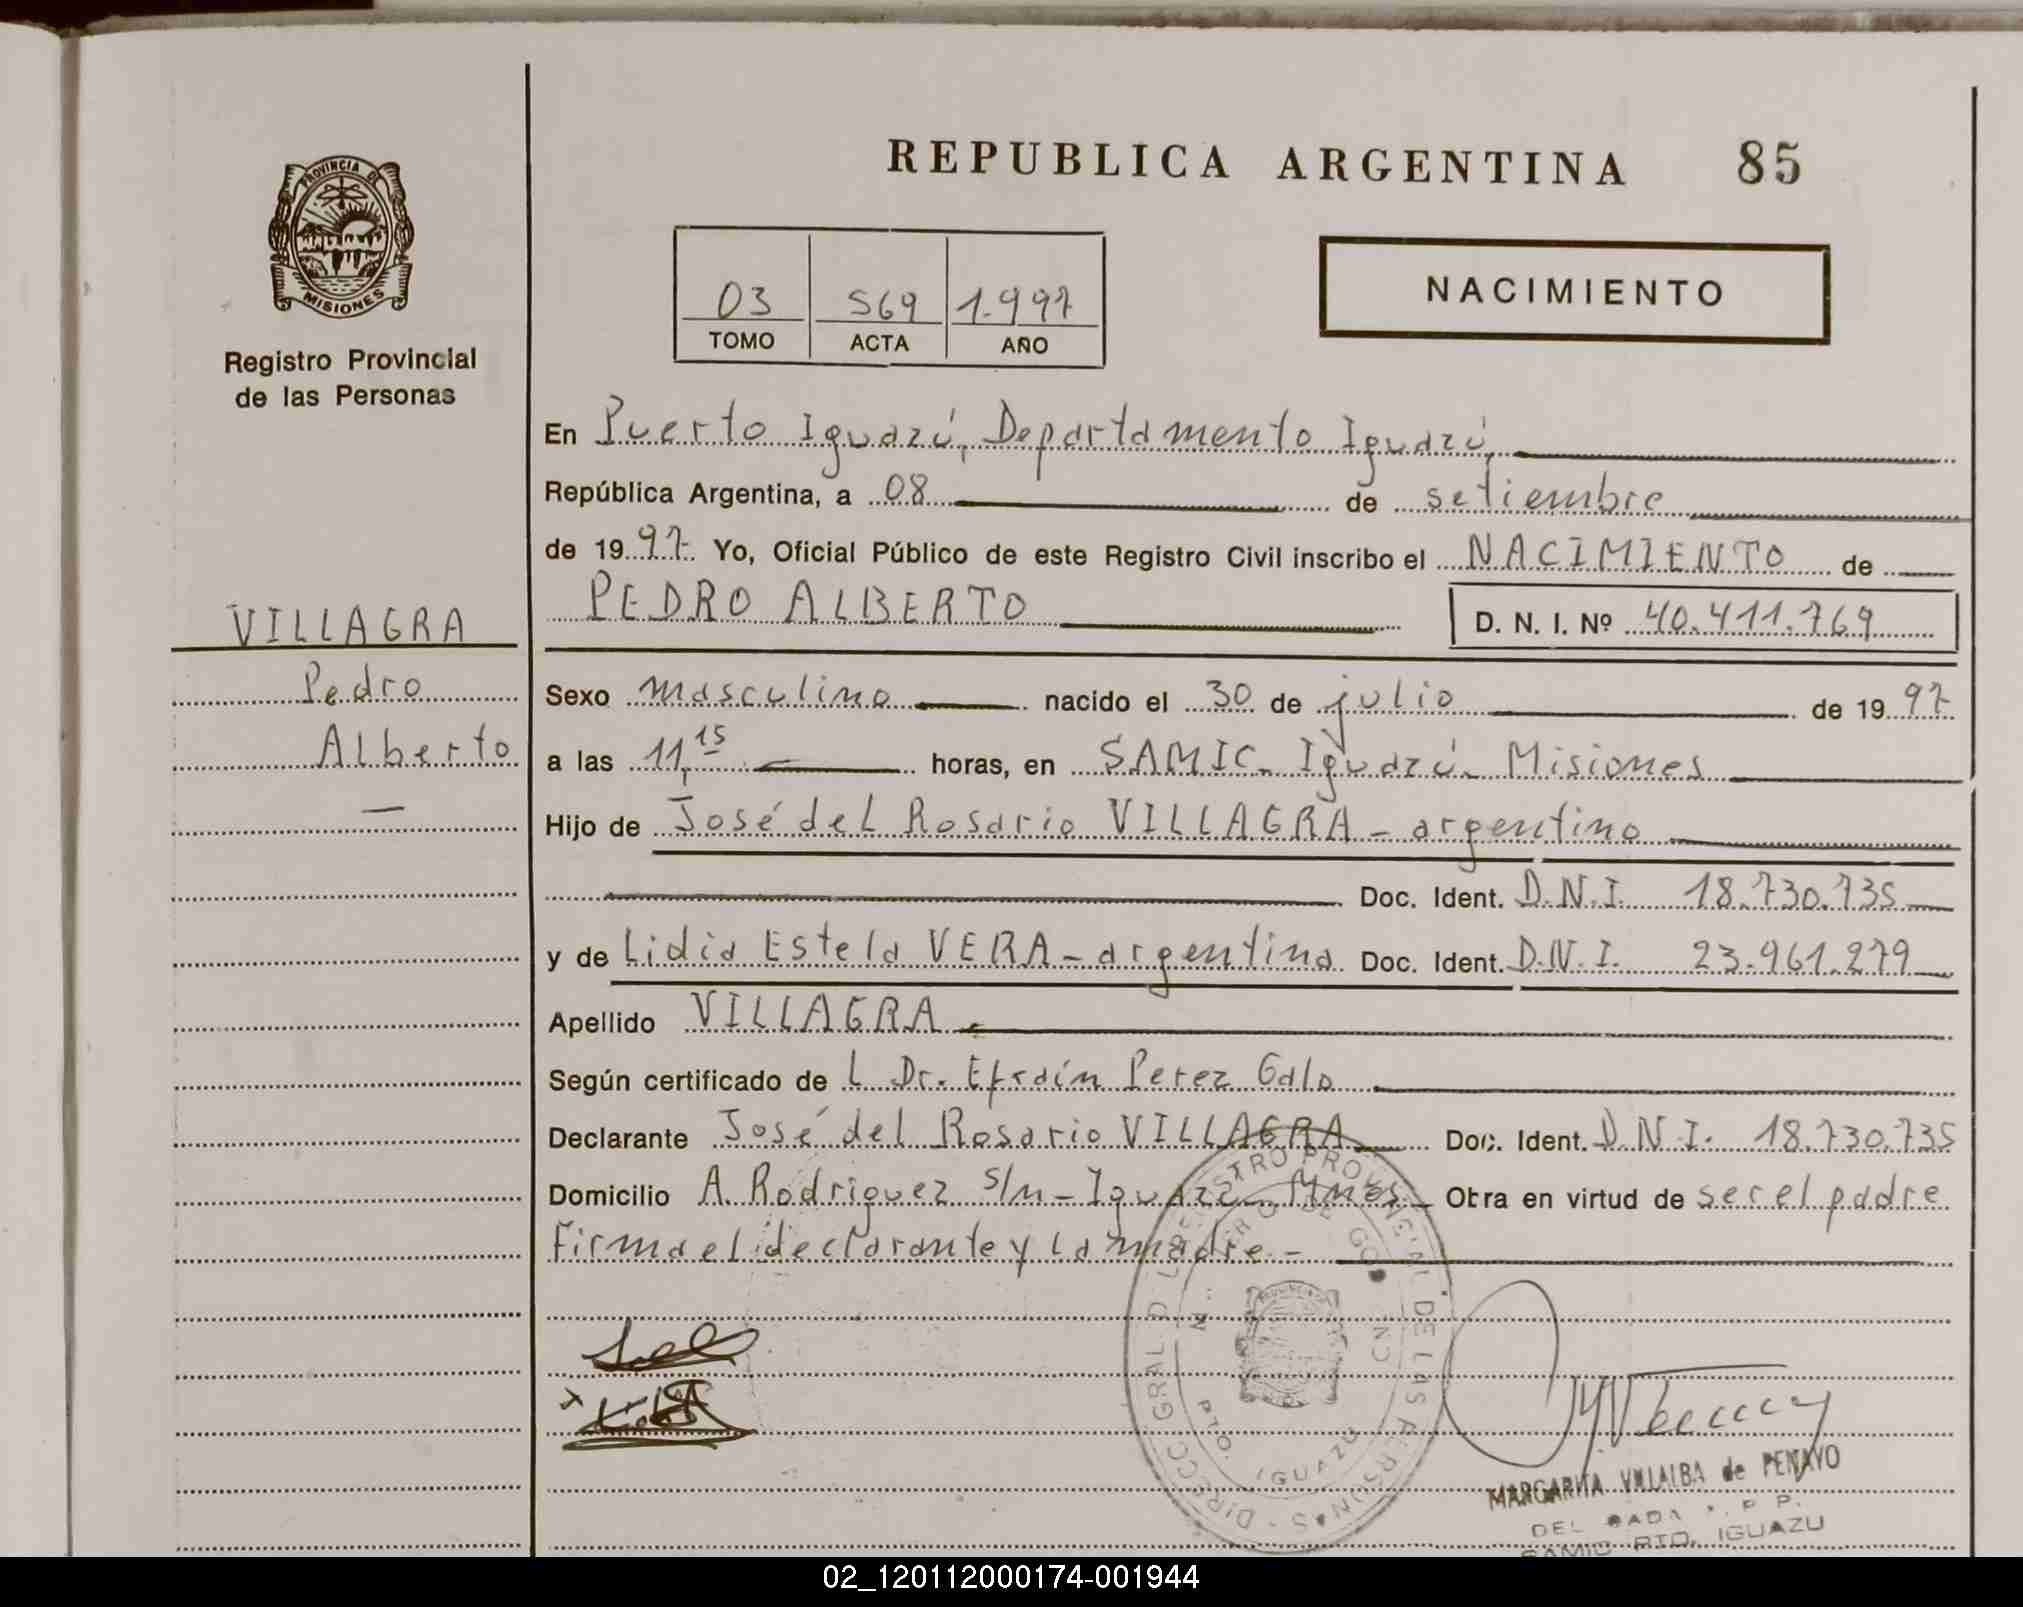 REPUBLICA ARGENTINA 85
PROVINCIA DE
MISIONES
Registro Provincial
de las Personas
03 569 1.997
TOMO ACTA AÑO
NACIMIENTO
En Puerto Iguazú, Departamento Iguazú,
República Argentina, a 08 de setiembre
de 1997 Yo, Oficial Público de este Registro Civil inscribo el NACIMIENTO de
PEDRO ALBERTO D. N. I. Nº 40.411.769
VILLAGRA
Pedro
Alberto
Sexo masculino nacido el 30 de julio de 1997
a las 11,15 horas, en SAMIC. Iguazú. Misiones
Hijo de José del Rosario VILLAGRA - argentino
Doc. Ident. D.N.I. 18.730.735
y de Lidia Estela VERA - argentina Doc. Ident. D.N.I. 23.961.279
Apellido VILLAGRA
Según certificado de L Dr. Efraín Perez Galo
Declarante José del Rosario VILLAGRA Doc. Ident. D.N.I. 18.730.735
Domicilio A. Rodriguez s/n - Iguazú Mnes. Obra en virtud de ser el padre
Firma el declarante y la madre.-
DIRECC GRAL D L REGISTRO PROVINCIAL DE LAS PERSONAS
PTO. IGUAZU
MARGARITA VILLALBA de PENAYO
SAMIC PTO. IGUAZU
02_120112000174-001944